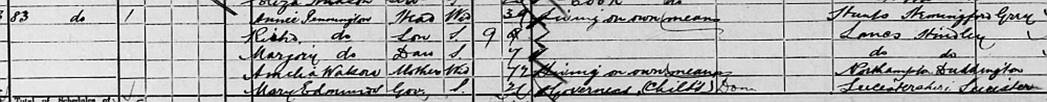 83 do 1 Annie Pennington Head Wid Living on own means Hunts Hemingford Grey
Richd. do Son S. 9 Lancs Hindley
Marjory do Dau S. 7 do do
Amelia Watson Mother Wid 72 Living on own means Northampton Duddington
Mary Edmunds Gov. S. Governess (Child's) Dom Leicestershire Leicester
Total of Schedules of